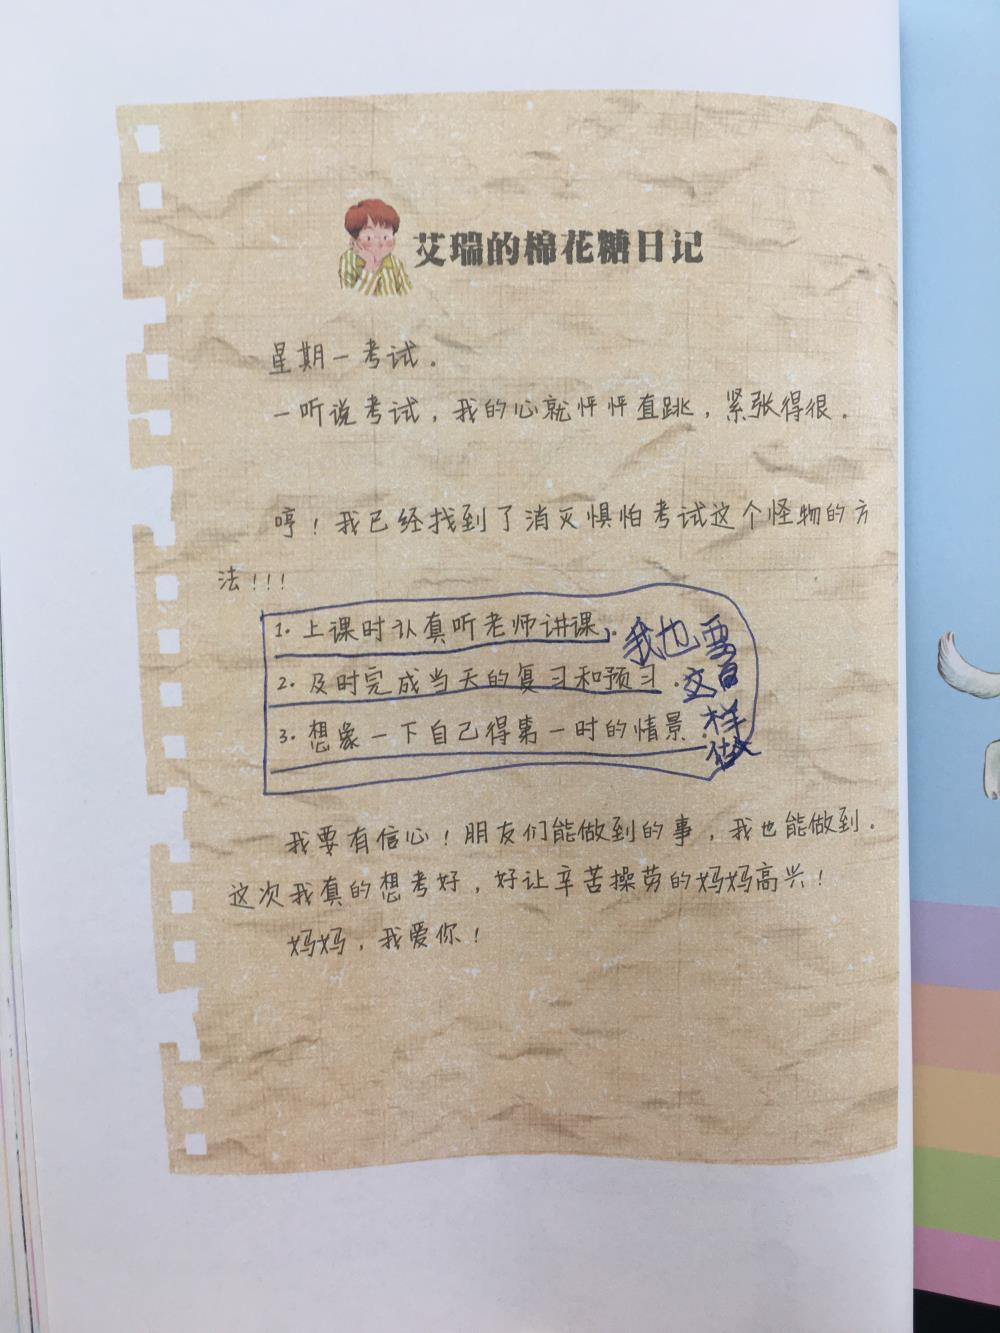 艾瑞的棉花糖日记
星期一考试.
一听说考试，我的心就怦怦直跳，紧张得很.
哼！我已经找到了消灭惧怕考试这个怪物的方
法！！！
1. 上课时认真听老师讲课.
2. 及时完成当天的复习和预习.
3. 想象一下自己得第一时的情景.
我也要
样
做
我要有信心！朋友们能做到的事，我也能做到.
这次我真的想考好，好让辛苦操劳的妈妈高兴！
妈妈，我爱你！